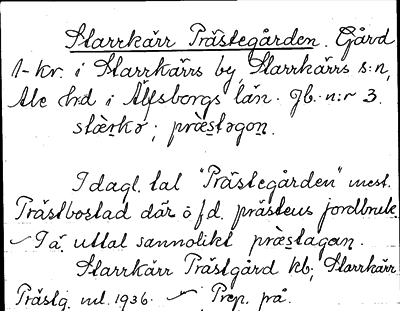 Starrkärr Prästegården. Gård
1-kr. i Starrkärrs by, Starrkärrs s:n,
Ale hrd i Älfsborgs län. Jb. n:r 3.
stærkər; præstəgoṇ.
I dagl. tal "Prästegården" mest.
Prästbostad där o fd. prästens jordbruk.
I ä. uttal sannolikt præstagan.
Starrkärr Prästgård kb; Starrkärr
Prästg. ml. 1936. Prep. på.